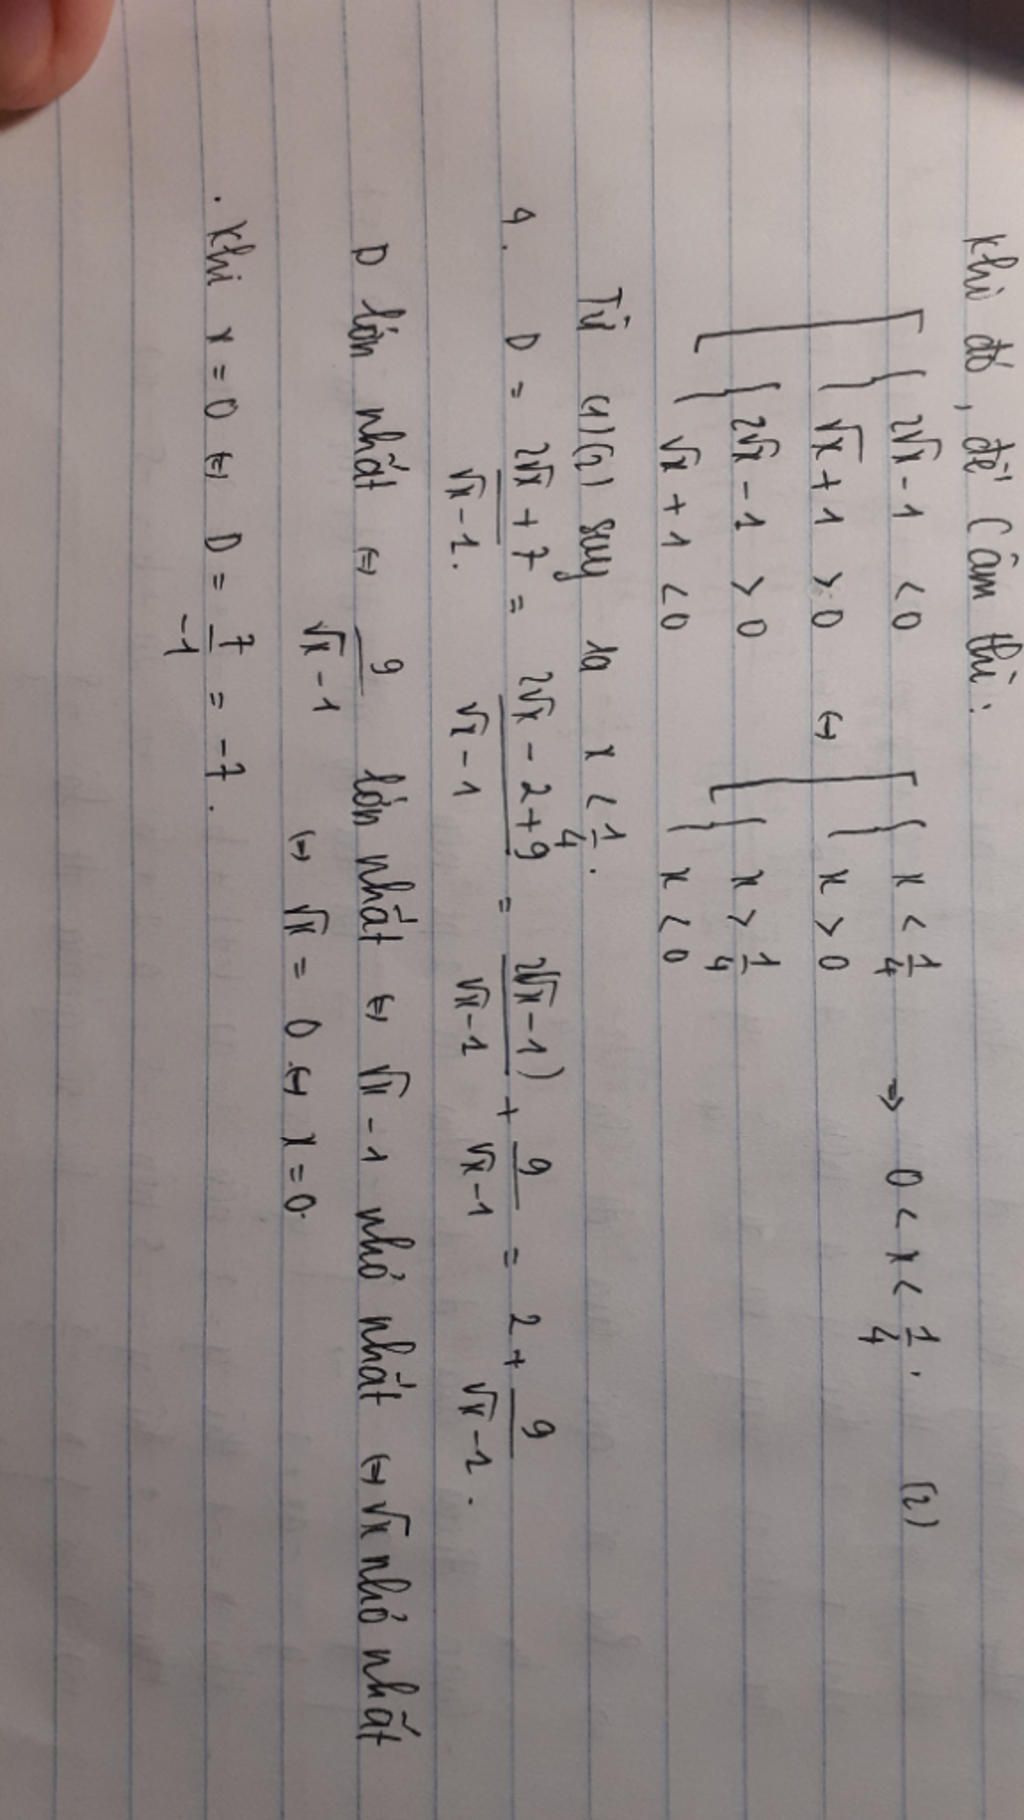 Khi đó, để C âm thì:
[ { 2√x - 1 < 0
√x + 1 > 0 ⇔ [ { x < 1/4
x > 0 ⇒ 0 < x < 1/4. (2)
{ 2√x - 1 > 0
√x + 1 < 0 { x > 1/4
x < 0
Từ (1)(2) suy ra x < 1/4.
4. D = (2√x + 7)/(√x - 1) = (2√x - 2 + 9)/(√x - 1) = 2(√x - 1)/(√x - 1) + 9/(√x - 1) = 2 + 9/(√x - 1).
D lớn nhất ⇔ 9/(√x - 1) lớn nhất ⇔ √x - 1 nhỏ nhất ⇔ √x nhỏ nhất
⇔ √x = 0 ⇔ x = 0.
. Khi x = 0 ⇔ D = 7/-1 = -7.